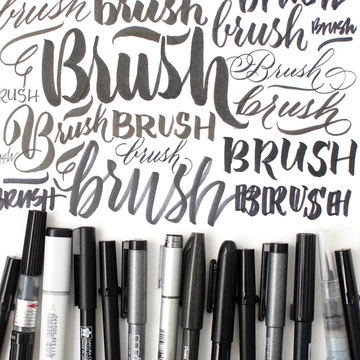 brush
brush
Brush
brush
brush
Brush
Brush
RUSH
brush
Brush
BRUSH
brush
BRUSH
brush
BRUSH
BRUSH